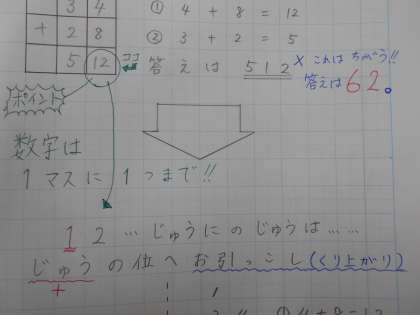 3 4
+ 2 8
5 12
① 4 + 8 = 12
② 3 + 2 = 5
ココ
答えは 512 × これは ちがう!!
答えは 62。
ポイント
数字は
1マスに1つまで!!
12 …じゅうにのじゅうは……
じゅうの位へお引っこし(くり上がり)
+